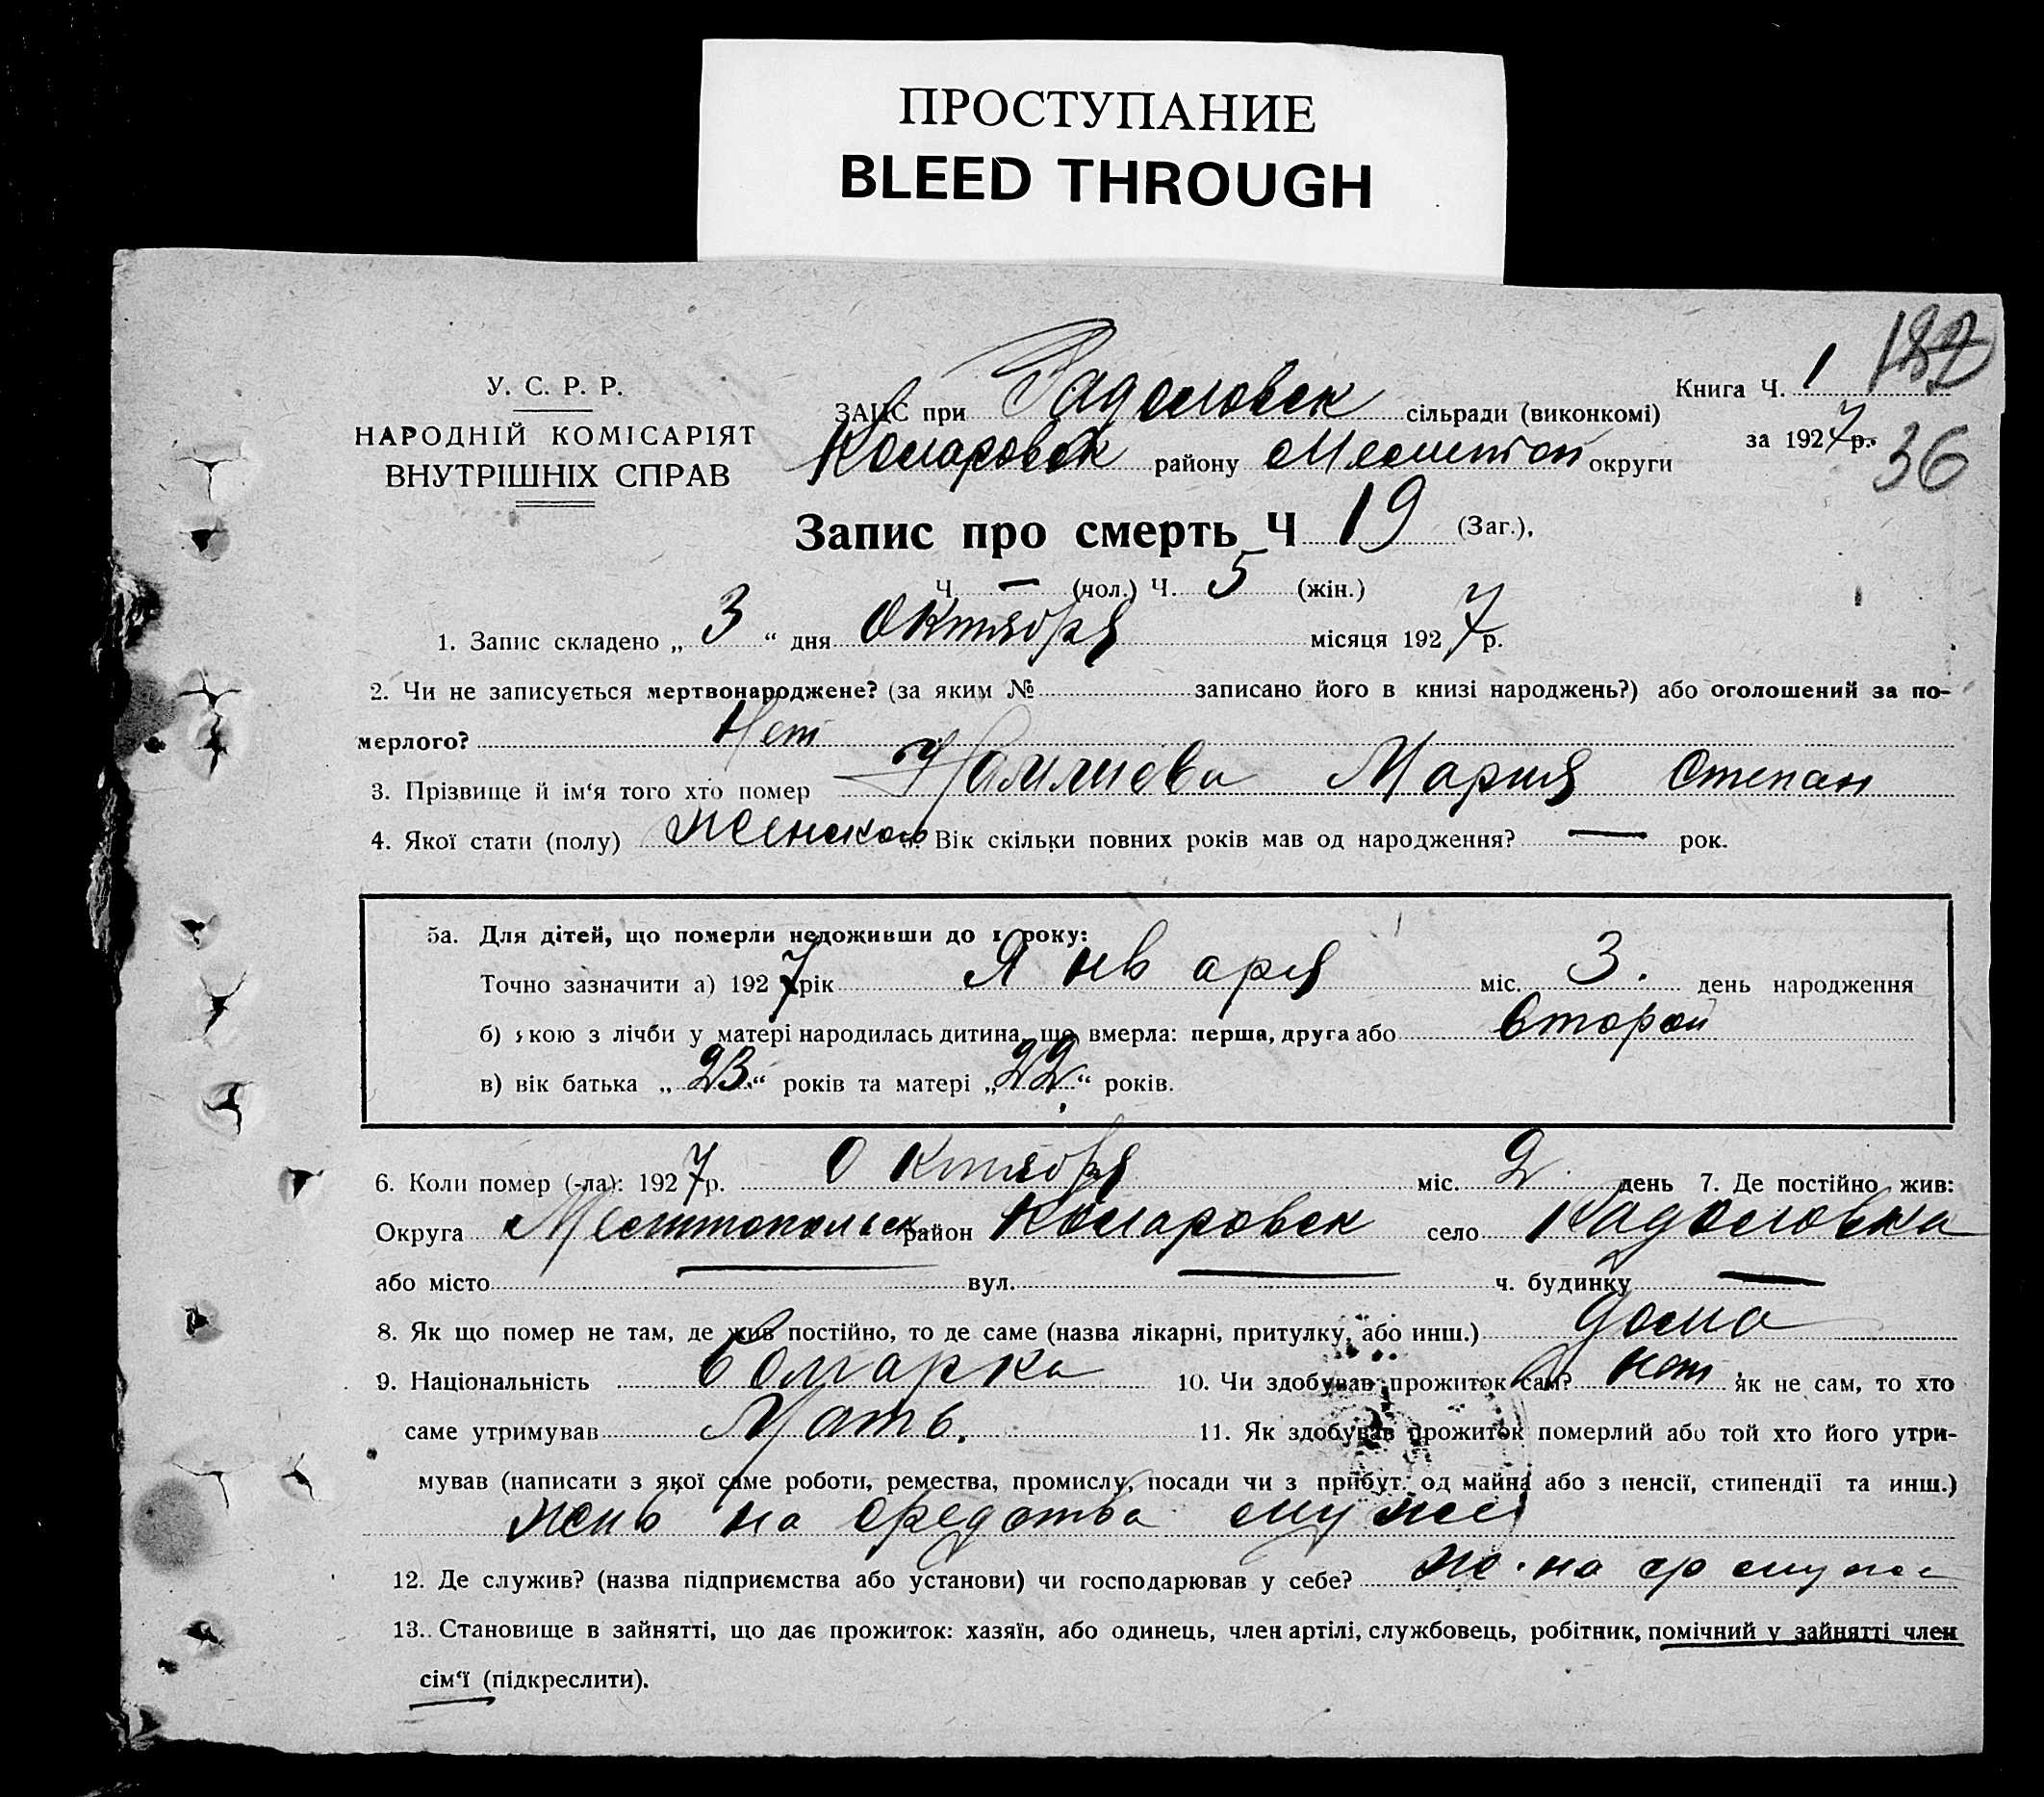 ПРОСТУПАНИЕ
BLEED THROUGH
У. С. Р. Р.
НАРОДНІЙ КОМІСАРІЯТ
ВНУТРІШНІХ СПРАВ
Книга Ч. 1
182
ЗАЦС при Радоловск сільради (виконкомі)
за 1927 р.
36
Комаровск району Мелитоп округи
Запис про смерть Ч 19 (Заг.),
Ч. — (чол.) Ч. 5 (жін.)
1. Запис складено „ 3 “ дня Октября місяця 1927 р.
2. Чи не записується мертвонароджене? (за яким № записано його в книзі народжень?) або оголошений за по-
мерлого? Нет
3. Прізвище й ім‘я того хто помер Мария Степан
4. Якої стати (полу) Женского Вік скільки повних років мав од народження? — рок.
5а. Для дітей, що померли недоживши до 1 року:
Точно зазначити а) 1927 рік Января міс. 3. день народження
б) якою з лічби у матері народилась дитина, що вмерла: перша, друга або второй
в) вік батька „ 23 “ років та матері „ 22 “ років.
6. Коли помер (-ла): 1927 р. Октября міс. 2 день 7. Де постійно жив:
Округа Мелитопольск район Комаровск село
або місто — вул. — ч. будинку —
8. Як що помер не там, де жив постійно, то де саме (назва лікарні, притулку, або инш.) дома
9. Національність болгарка 10. Чи здобував прожиток сам? нет як не сам, то хто
саме утримував Мать. 11. Як здобував прожиток померлий або той хто його утри-
мував (написати з якої саме роботи, ремества, промислу, посади чи з прибут. од майна або з пенсії, стипендії та инш.)
на средства мужа
12. Де служив? (назва підприємства або установи) чи господарював у себе? на ср мужа
13. Становище в зайнятті, що дає прожиток: хазяїн, або одинець, член артілі, службовець, робітник, помічний у зайнятті член
сім‘ї (підкреслити).